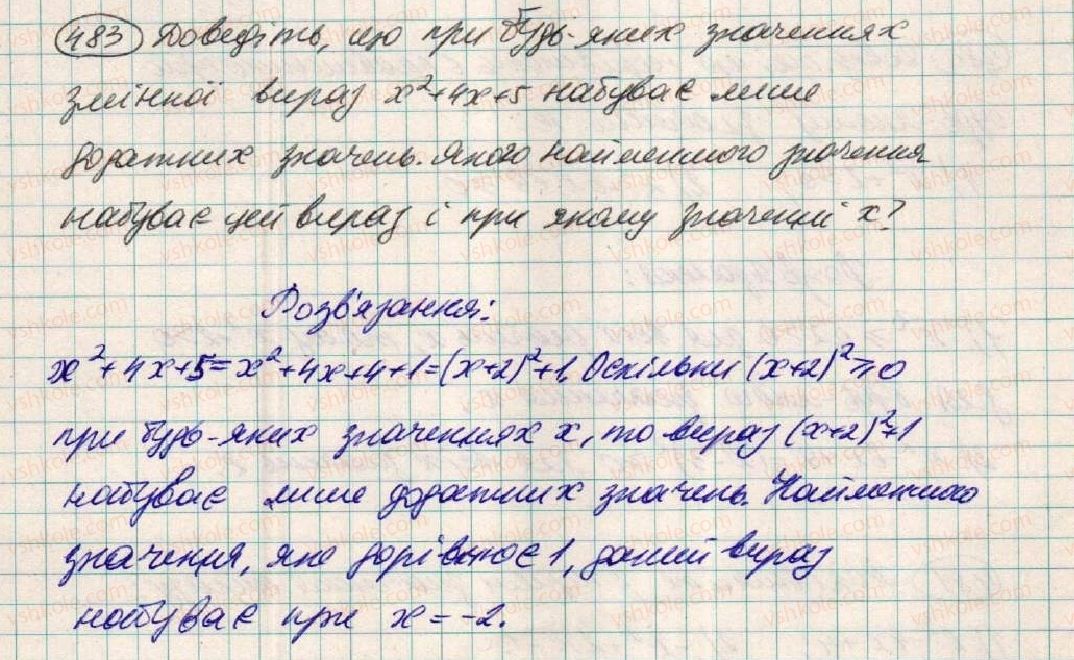 483 Доведіть, що при будь-яких значеннях
змінної вираз x²+4x+5 набуває лише
додатних значень. Якого найменшого значення
набуває цей вираз і при якому значенні x?
Розв'язання:
x²+4x+5=x²+4x+4+1=(x+2)²+1. Оскільки (x+2)²⩾0
при будь-яких значеннях x, то вираз (x+2)²+1
набуває лише додатних значень. Найменшого
значення, яке дорівнює 1, даний вираз
набуває при x=-2.